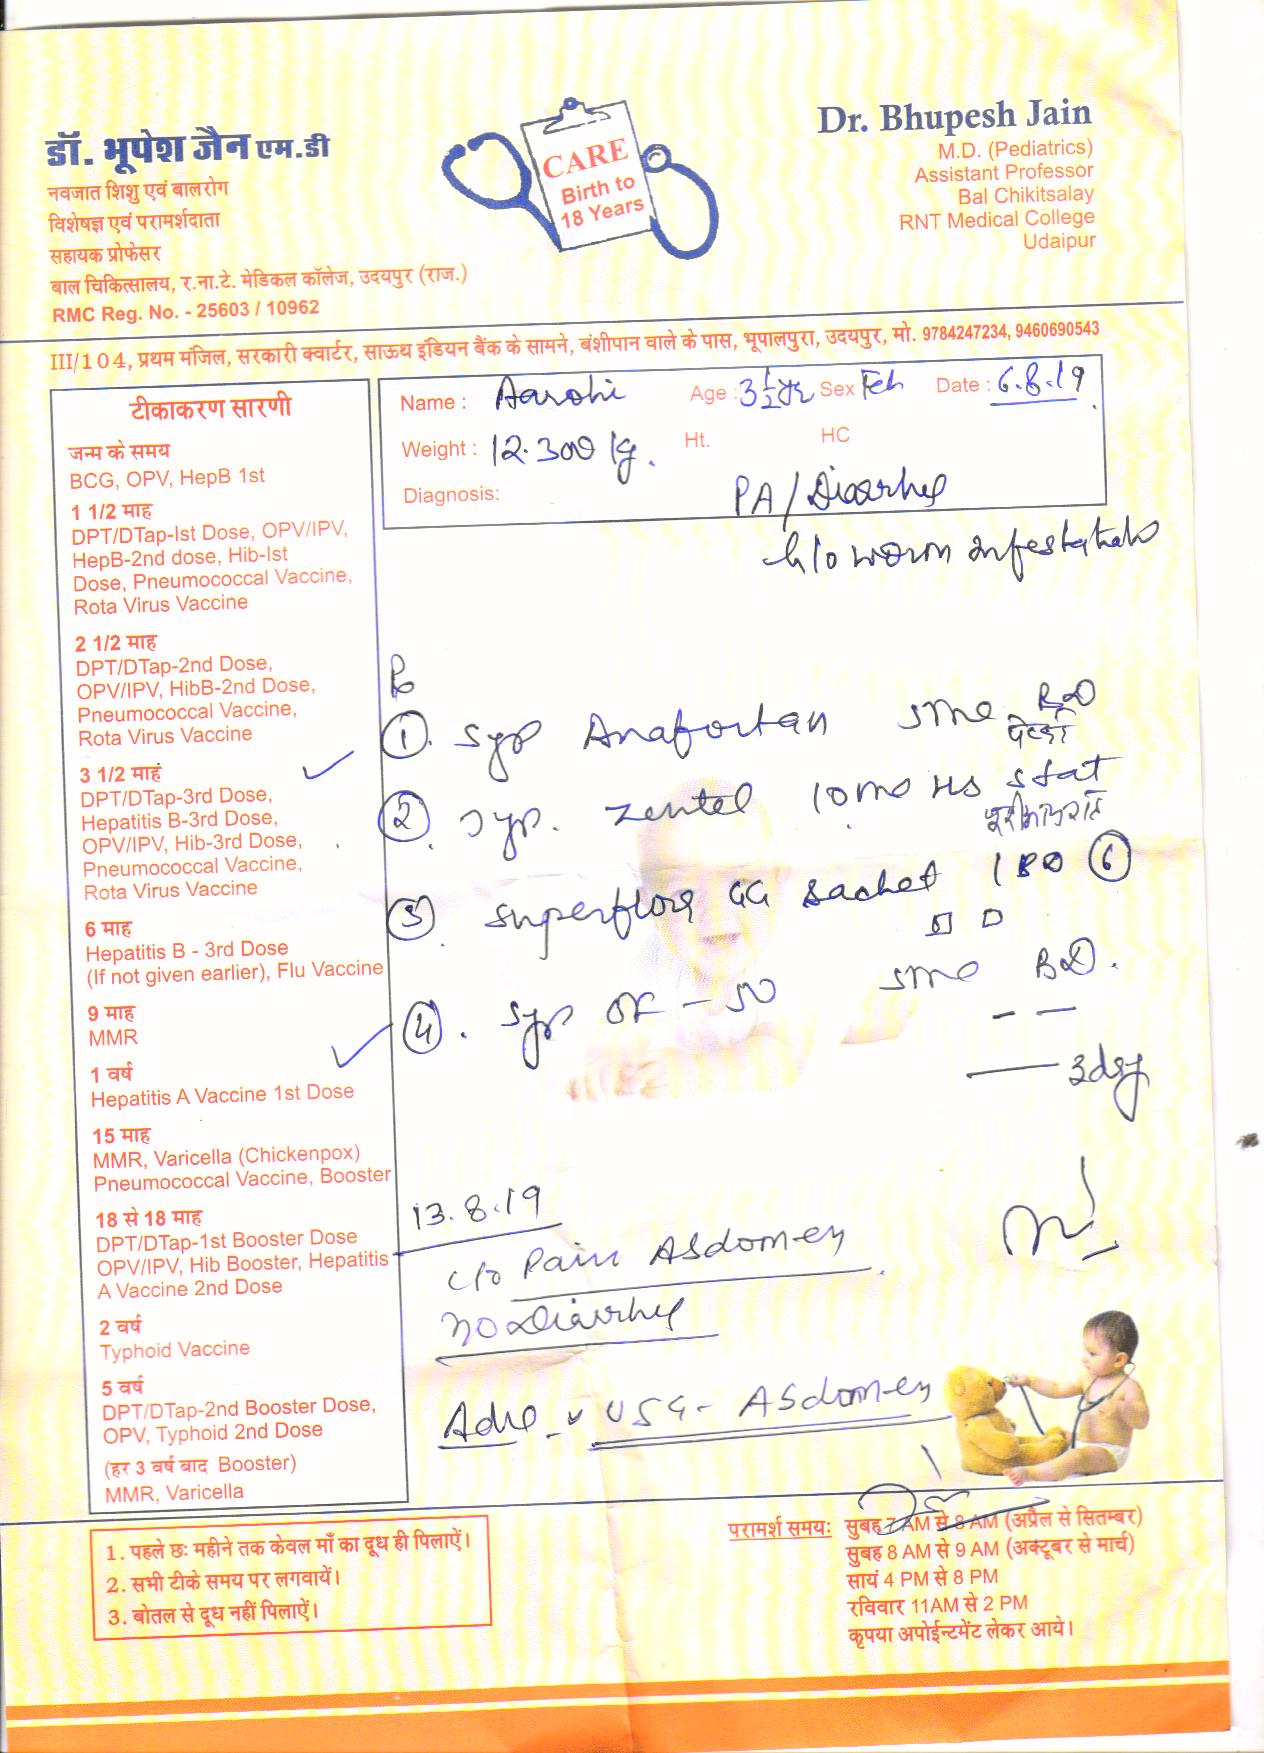 डॉ. भूपेश जैन एम.डी
नवजात शिशु एवं बालरोग
विशेषज्ञ एवं परामर्शदाता
सहायक प्रोफेसर
बाल चिकित्सालय, र.ना.टे. मेडिकल कॉलेज, उदयपुर (राज.)
RMC Reg. No. - 25603 / 10962
CARE
Birth to
18 Years
Dr. Bhupesh Jain
M.D. (Pediatrics)
Assistant Professor
Bal Chikitsalay
RNT Medical College
Udaipur
III/104, प्रथम मंजिल, सरकारी क्वार्टर, साऊथ इंडियन बैंक के सामने, बंशीपान वाले के पास, भूपालपुरा, उदयपुर, मो. 9784247234, 9460690543
टीकाकरण सारणी
जन्म के समय
BCG, OPV, HepB 1st
1 1/2 माह
DPT/DTap-Ist Dose, OPV/IPV,
HepB-2nd dose, Hib-Ist
Dose, Pneumococcal Vaccine,
Rota Virus Vaccine
2 1/2 माह
DPT/DTap-2nd Dose,
OPV/IPV, HibB-2nd Dose,
Pneumococcal Vaccine,
Rota Virus Vaccine
3 1/2 माहं
DPT/DTap-3rd Dose,
Hepatitis B-3rd Dose,
OPV/IPV, Hib-3rd Dose,
Pneumococcal Vaccine,
Rota Virus Vaccine
6 माह
Hepatitis B - 3rd Dose
(If not given earlier), Flu Vaccine
9 माह
MMR
1 वर्ष
Hepatitis A Vaccine 1st Dose
15 माह
MMR, Varicella (Chickenpox)
Pneumococcal Vaccine, Booster
18 से 18 माह
DPT/DTap-1st Booster Dose
OPV/IPV, Hib Booster, Hepatitis
A Vaccine 2nd Dose
2 वर्ष
Typhoid Vaccine
5 वर्ष
DPT/DTap-2nd Booster Dose,
OPV, Typhoid 2nd Dose
(हर 3 वर्ष बाद Booster)
MMR, Varicella
Name : Aarohi Age : 3 1/2 yr Sex Feh Date : 6.8.19
Weight : 12.300 kg. Ht. HC
Diagnosis: PA/Diarrhea
h/o worm infestation
Rx
1. syp Anafortan 5ml BD
2. syp. Zentel 10ml HS stat
3. superflora GG sachet 1 BD 6
4. syp OF-50 5ml BD.
3day
13.8.19
c/o Pain Abdomen
no Diarrhea
Adv USG - Abdomen
1. पहले छः महीने तक केवल माँ का दूध ही पिलाऐं।
2. सभी टीके समय पर लगवायें।
3. बोतल से दूध नहीं पिलाऐं।
परामर्श समयः सुबह 7 AM से 8 AM (अप्रैल से सितम्बर)
सुबह 8 AM से 9 AM (अक्टूबर से मार्च)
सायं 4 PM से 8 PM
रविवार 11AM से 2 PM
कृपया अपोईन्टमेंट लेकर आये।